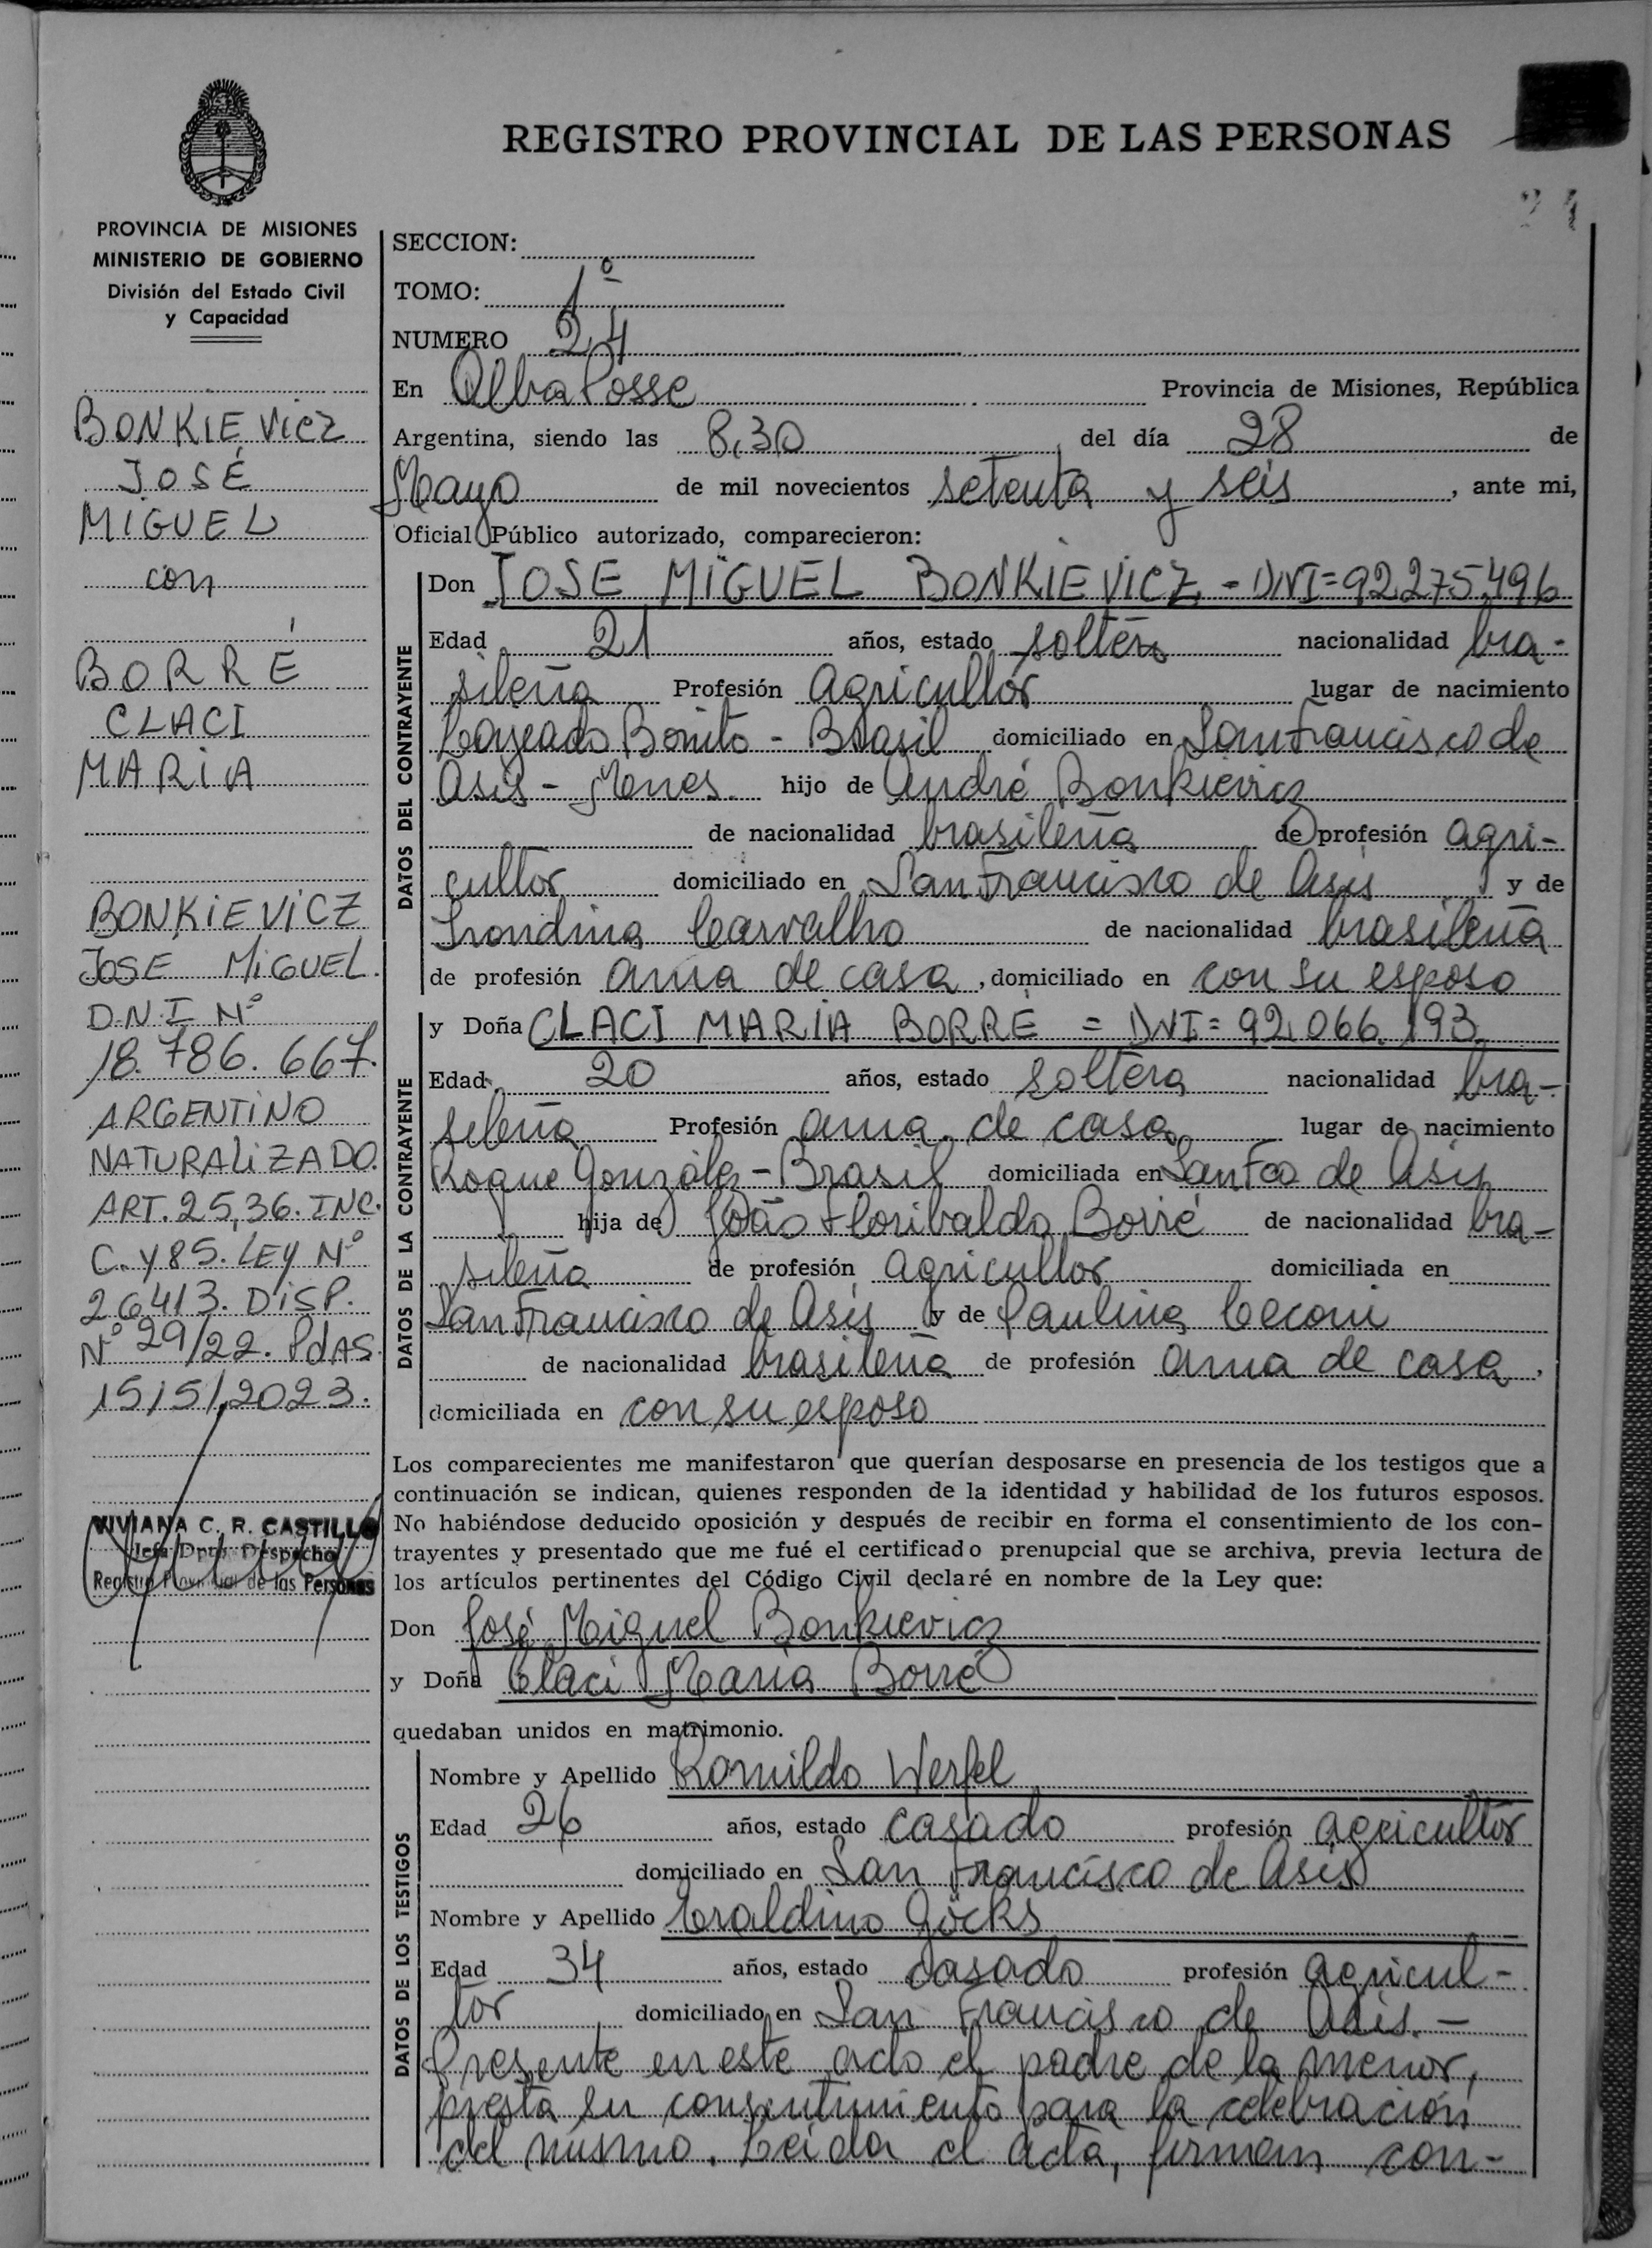 REGISTRO PROVINCIAL DE LAS PERSONAS
PROVINCIA DE MISIONES
MINISTERIO DE GOBIERNO
División del Estado Civil
y Capacidad
BONKIEVICZ
JOSÉ
MIGUEL
con
BORRÉ
CLACI
MARIA
BONKIEVICZ
JOSE MIGUEL.
D.N.I Nº
18.786.667.
ARGENTINO
NATURALIZADO.
ART. 25,36. INC.
C. Y 85. LEY Nº
26413. DISP.
Nº 29/22. PdAS.
15/5/2023.
VIVIANA C. R. CASTILLO
Jefa Dpto. Despacho
Registro Provincial de las Personas
21
SECCION:
TOMO: 1º
NUMERO 24
En Alba Posse Provincia de Misiones, República
Argentina, siendo las 8,30 del día 28 de
Mayo de mil novecientos setenta y seis, ante mi,
Oficial Público autorizado, comparecieron:
DATOS DEL CONTRAYENTE
Don JOSE MIGUEL BONKIEVICZ - DNI=92.275.496
Edad 21 años, estado soltero nacionalidad bra-
sileña Profesión agricultor lugar de nacimiento
Lageado Bonito - Brasil domiciliado en San Francisco de
Asís - Mnes. hijo de André Bonkievicz
de nacionalidad brasileña de profesión agri-
cultor domiciliado en San Francisco de Asís y de
Carvalho de nacionalidad brasileña
de profesión ama de casa, domiciliado en con su esposo
DATOS DE LA CONTRAYENTE
y Doña CLACI MARIA BORRÉ = DNI= 92.066.193
Edad 20 años, estado soltera nacionalidad bra-
sileña Profesión ama de casa lugar de nacimiento
Roque González - Brasil domiciliada en San Fco de Asís
hija de João Floribaldo Borré de nacionalidad bra-
sileña de profesión agricultor domiciliada en
San Francisco de Asís y de Paulina Ceconi
de nacionalidad brasileña de profesión ama de casa,
domiciliada en con su esposo
Los comparecientes me manifestaron que querían desposarse en presencia de los testigos que a
continuación se indican, quienes responden de la identidad y habilidad de los futuros esposos.
No habiéndose deducido oposición y después de recibir en forma el consentimiento de los con-
trayentes y presentado que me fué el certificado prenupcial que se archiva, previa lectura de
los artículos pertinentes del Código Civil declaré en nombre de la Ley que:
Don José Miguel Bonkievicz
y Doña Claci Maria Borré
quedaban unidos en matrimonio.
DATOS DE LOS TESTIGOS
Nombre y Apellido Romildo Werfel
Edad 26 años, estado casado profesión agricultor
domiciliado en San Francisco de Asís
Nombre y Apellido Eraldino Göcks
Edad 34 años, estado casado profesión agricul-
tor domiciliado en San Francisco de Asís. -
Presente en este acto el padre de la menor,
presta su consentimiento para la celebración
del mismo. Leída el acta, firman con-